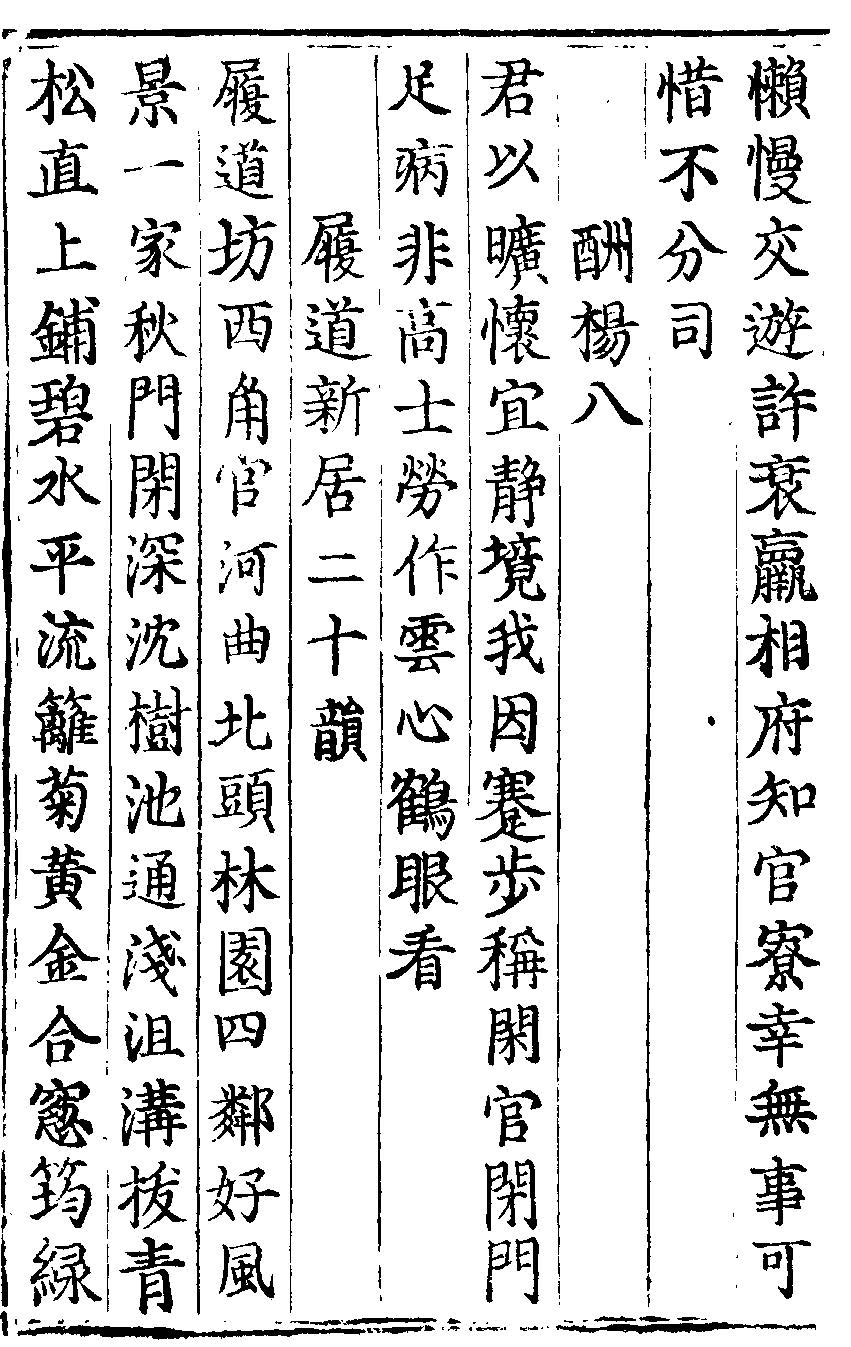 懶慢交遊許衰羸相府知官寮幸無事可
惜不分司
酬楊八
君以曠懷宜静境我因蹇步稱閑官閉門
足病非高士勞作雲心鶴眼看
履道新居二十韻
履道坊西角官河曲北頭林園四鄰好風
景一家秋門閉深沈樹池通淺沮溝拔青
松直上鋪碧水平流籬菊黄金合窻筠緑